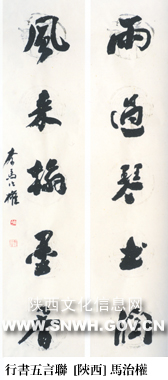 雨過琴书潤
風来翰墨香
馬治權
陕西文化信息网
WWW.SNWH.GOV.CN
行書五言聯 [陝西] 馬治權